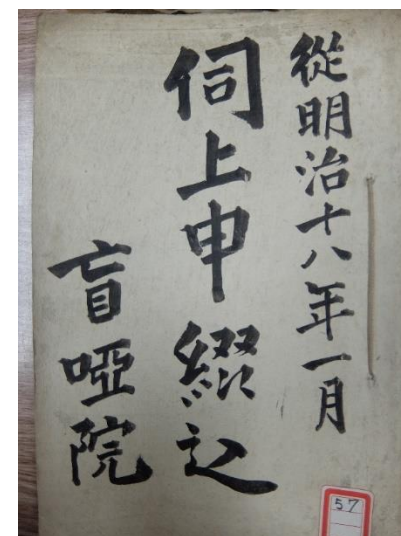 從明治十八年一月
伺上申綴込
盲啞院
57